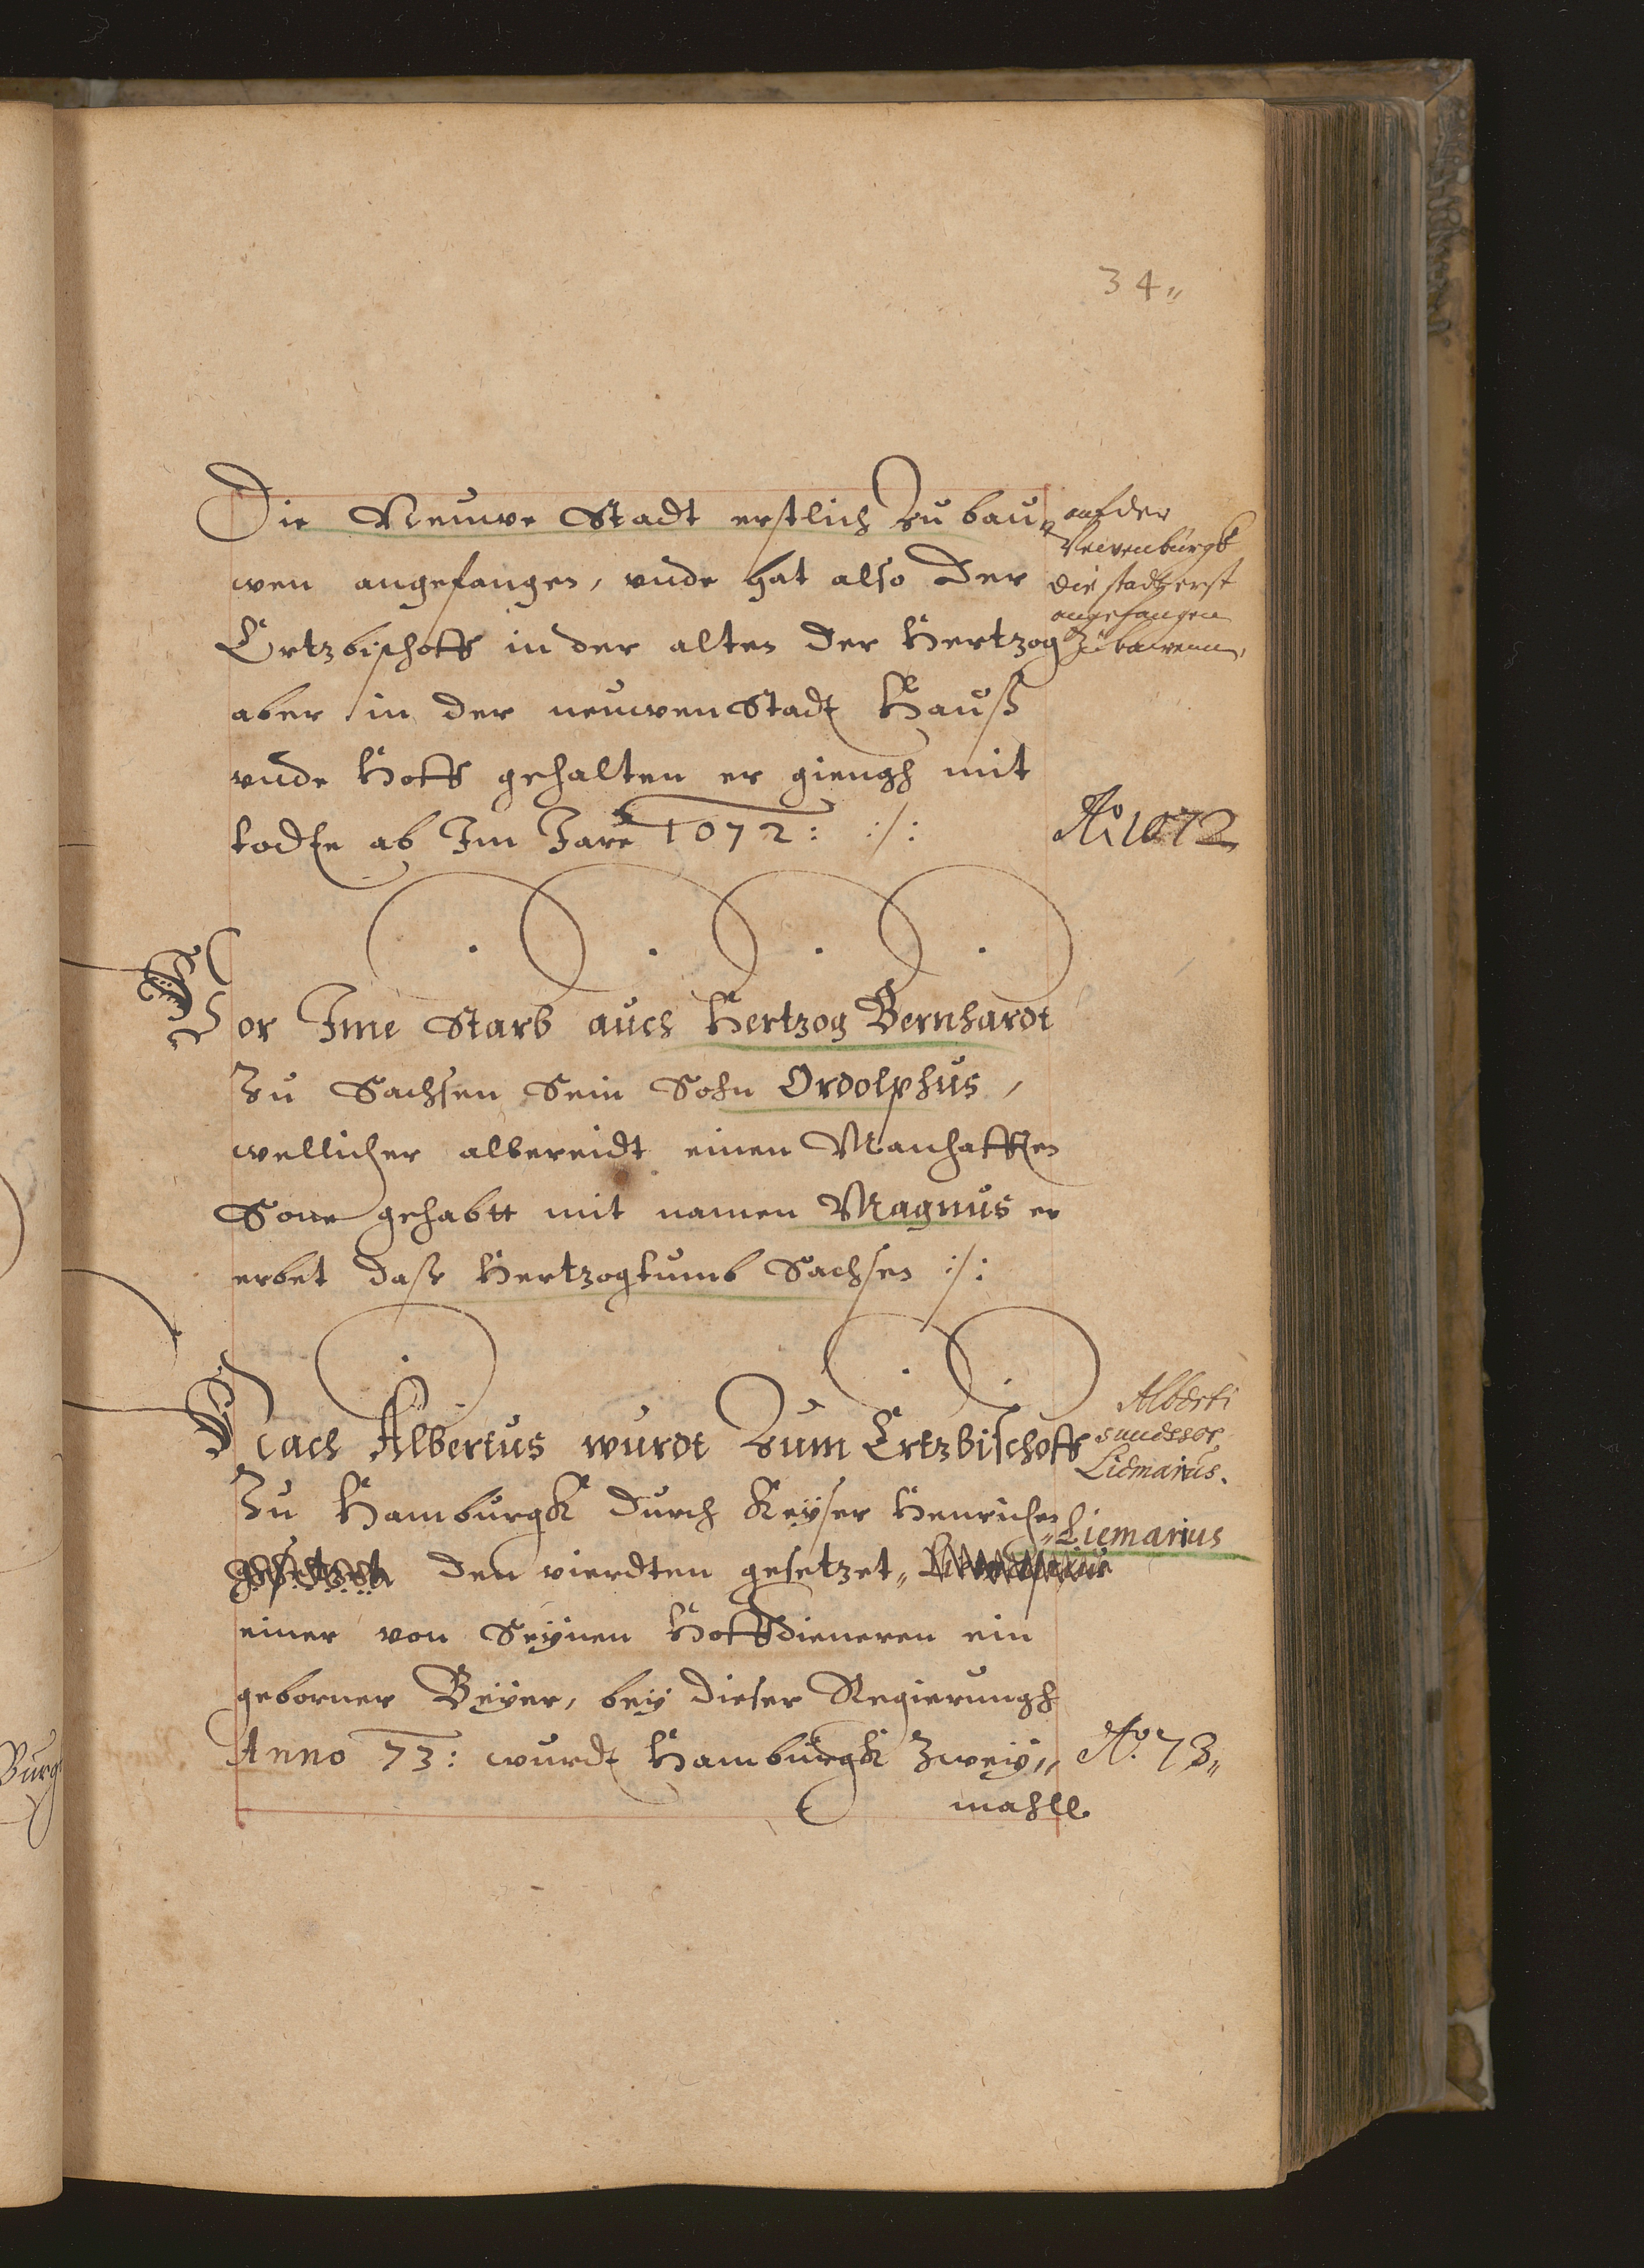 34„
Die Neuwe Stadt erstlich Zu bau„
wen angefangen, unde hat also Der
Ertzbischoff in der alten Der Hertzog
aber in der neuwen Stadt Hauß
unde Hoff gehalten er giengh mit
todte ab Im Jare 1072: :/:
auf der
Newenburgk
die stadt erst
angefangen
Zu bawenn,
Ao. 1072
Vor Ime Starb auch Hertzog Bernhardt
Zu Sachsen Sein Sohn Ordolphus,
wellicher albereidt einen Manhafften
Sone gehabtt mit namen Magnus er
erbet Dasz Hertzogtumb Sachsen :/:
Nach Albertus wurdt Zum Ertzbischoff
Zu Hamburgk Durch Keyser Henrichen
Den vierdten gesetzet„ „Liemarius
einer von Seynen Hoffdieneren ein
geborner Beyer, bey Dieser Regierungh
Anno 73: wurdt Hamburgk Zwey„
mahll
Alberti
successor
Liemarius.
Ao. 73„
Burg